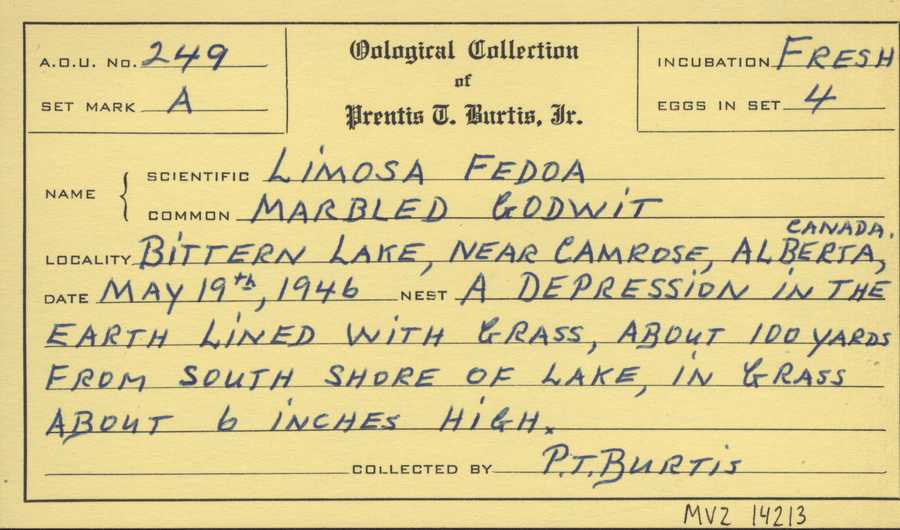 A.O.U. No. 249
SET MARK A
Oological Collection
of
Prentis T. Burtis, Jr.
INCUBATION FRESH
EGGS IN SET 4
NAME
SCIENTIFIC LIMOSA FEDOA
COMMON MARBLED GODWIT
CANADA.
LOCALITY BITTERN LAKE, NEAR CAMROSE, ALBERTA,
DATE MAY 19th, 1946 NEST A DEPRESSION IN THE
EARTH LINED WITH GRASS, ABOUT 100 YARDS
FROM SOUTH SHORE OF LAKE, IN GRASS
ABOUT 6 INCHES HIGH.
COLLECTED BY P.T. BURTIS
MVZ 14213